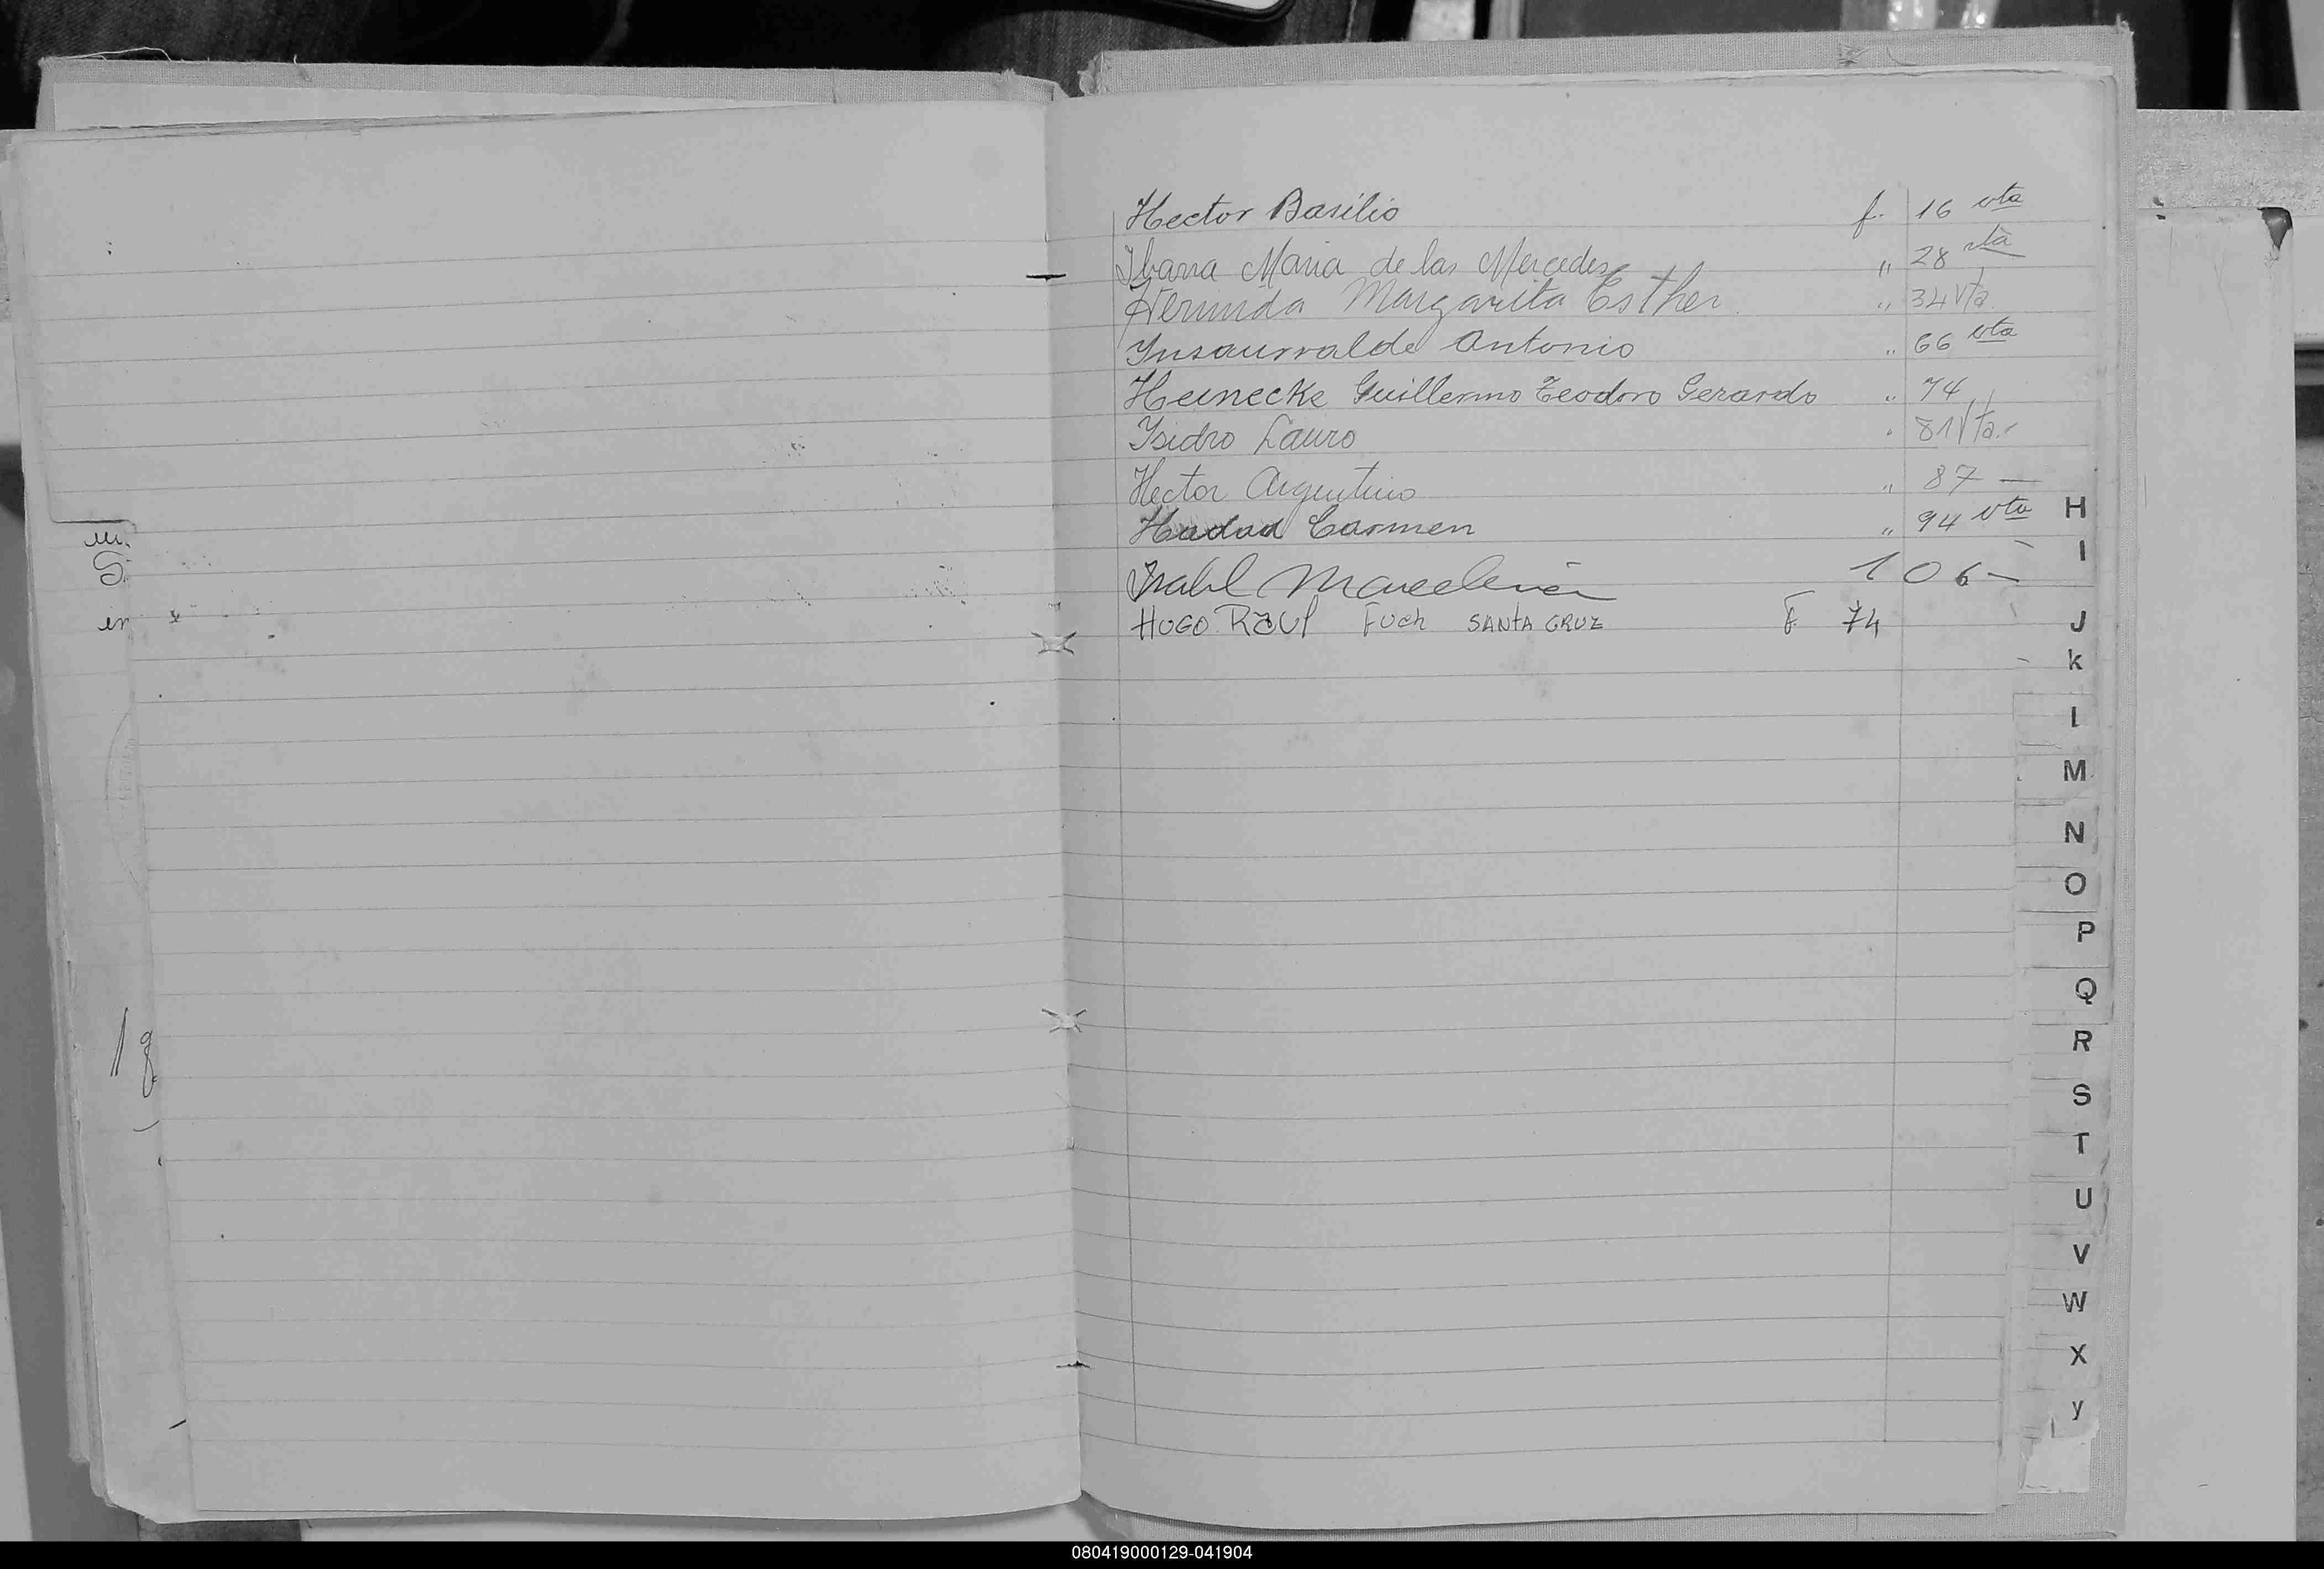 Hector Basilio f. 16 vta
Ibarra Maria de las Mercedes " 28 vta
Herminda Margarita Esther " 34 vta
Insaurralde Antonio " 66 vta
Heinecke Guillermo Teodoro Gerardo " 74
Isidro Lauro " 81 Vta.
Hector Argentino " 87 —
Hadad Carmen " 94 vta
Isabel Marcelina 106 —
HUGO RAUL FUCH SANTA CRUZ F 74
H
I
J
k
l
M
N
O
P
Q
R
S
T
U
V
W
X
y
080419000129-041904